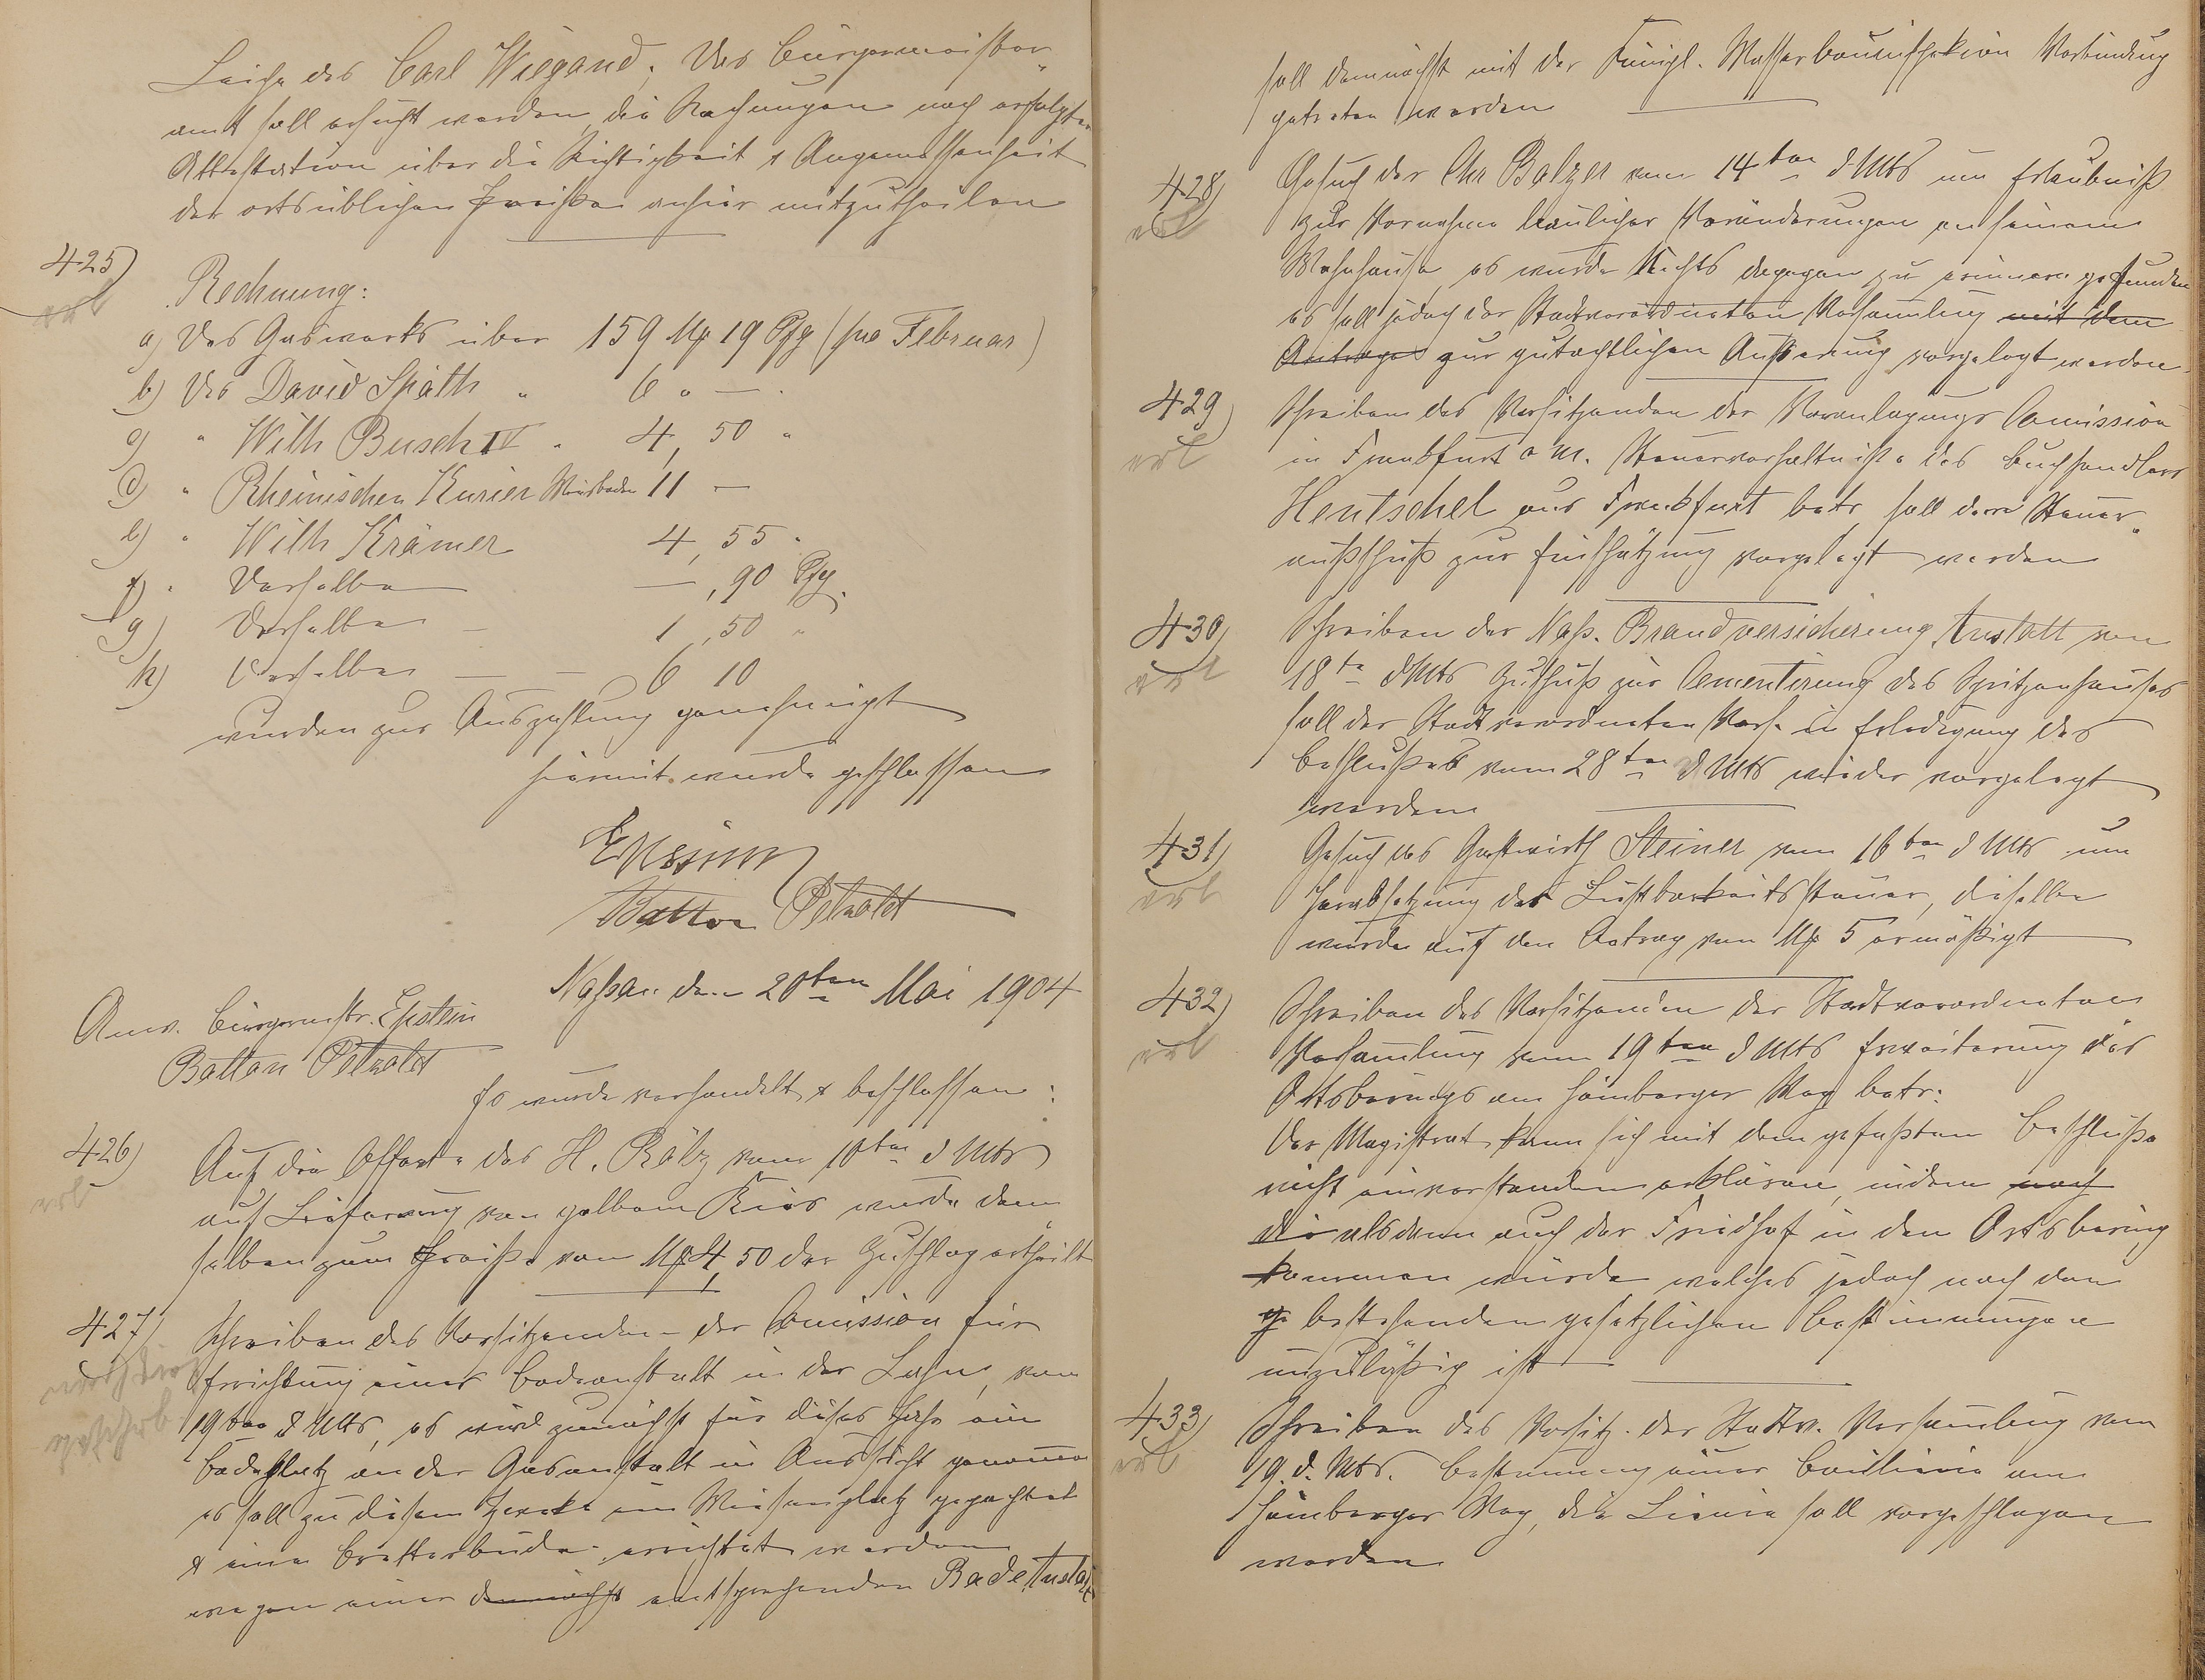 Leiche des Carl Wiegand. Das Bürgermeister„
amt soll ersucht werden, die Rechnungen nach erfolgter
Attestation über die Richtigkeit & Angemessenheit
der ortsüblichen Preiße anhier mitzutheilen
425) Rechnung:
erl
a) Des Gaswerks über 159 Mk 19 Pfg (pro Februar)
b) Des David Späth „ 6 „ —
c) „ Wilh Busch IV „ 4, 50 „
d) „ Rheinischen Kurier Wiesbaden 11 —
e) „ Wilh Krämer 4, 55 „
f) „ Derselbe —, 90 Pfg.
g) Derselbe — 1, 50 „
h) Derselbe — — 6 10
wurden zur Auszahlung genehmigt
hiermit wurde geschlossen
Batton Petzold
Naßau den 20ten Mai 1904
Anw. Bürgermstr. Epstein
Batton Petzold
Es wurde verhandelt & beschlossen:
426) Auf die Offerte des H. Rölz vom 10ten d Mts
erl
auf Lieferung von gelbem Kies wurde dem
selben zum Preiße von Mk 4,50 der Zuschlag ertheilt
427) Schreiben des Vorsitzenden der Comission für
Errichtung einer Badeanstalt in der Lahn, vom
19ten d Mts, es wird zunächst für dieses Jahr ein
Badeplatz an der Gasanstalt in Aussicht genommen
es soll zu diesem Zwecke ein Wiesenplatz gepachtet
& eine Bretterbude errichtet werden
wegen einer demnächst entsprechenden Bade Anstalt
soll demnächst mit der Königl. Wasserbauinspektion Verbindung
getreten werden
428) Gesuch des Chr Balzer vom 14ten d Mts um Erlaubniß
erl
zur Vornahme baulicher Veränderungen an seinem
Wohnhause, es wurde Nichts dagegen zu erinnern gefunden
es soll jedoch der Stadtverordneten Versammlung mit dem
Antrage zur gutachtlichen Äußerung vorgelegt werden.
429) Schreiben des Vorsitzenden der Veranlagungs Comission
erl
in Frankfurt a M. Steuerverhältniße des Buchhändlers
Hentschel aus Frankfurt betr. soll dem Steuer„
ausschuß zur Einschätzung vorgelegt werden
430) Schreiben der Naß. Brandversicherung Anstalt vom
erl
18ten d Mts Zuschuß zur Cementirung des Spritzenhauses
soll der Stadtverordneten Vers. in Erledigung des
Beschlußes vom 28ten d Mts wieder vorgelegt
werden
431) Gesuch des Gastwirth Steiner vom 16ten d Mts um
erl
Herabsetzung der Lustbarkeitssteuer, dieselbe
wurde auf den Betrag von Mk 5 ermäßigt
432) Schreiben des Vorsitzenden der Stadtverordneten
erl
Versammlung vom 19ten d Mts Erweiterung des
Ortsberings am Hömberger Weg betr:
Der Magistrat kann sich mit dem gefaßten Beschluße
nicht einverstanden erklären, indem nach
die alsdann auch der Friedhof in den Ortsbering
kommen würde welches jedoch nach den
ge bestehenden gesetzlichen Bestimmungen
unzuläßig ist
433) Schreiben des Vorsitz. der Stadtv. Versammlung vom
erl
19. d. Mts. Bestimmung einer Baulinie am
Hömberger Weg, die Linie soll vorgeschlagen
werden